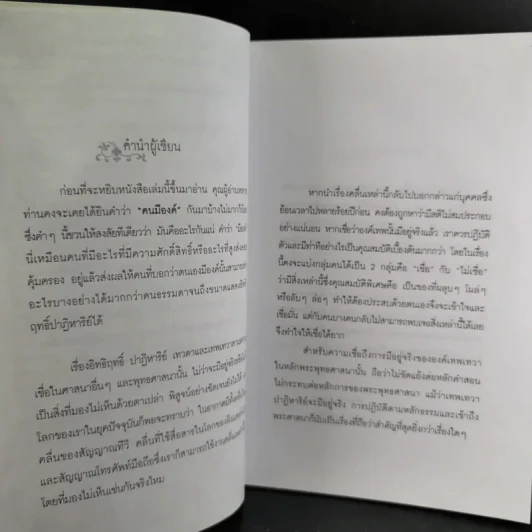 คำนำผู้เขียน
ก่อนที่จะหยิบหนังสือเล่มนี้ขึ้นมาอ่าน คุณผู้อ่าน
ท่านคงจะเคยได้ยินคำว่า "คนมีองค์" กันมาบ้างไม่มากก็น้อย
ซึ่งคำๆ นี้ชวนให้สงสัยทีเดียวว่า มันคืออะไรกันแน่ คำว่า
นี่เหมือนคนที่มีอะไรที่มีความศักดิ์สิทธิ์หรืออะไรที่สูงส่ง
คุ้มครอง อยู่แล้วส่งผลให้คนที่บอกว่าตนเองมีองค์นั้น
อะไรบางอย่างได้มากกว่าคนธรรมดาจนถึงขนาดแสดงอิทธิ
ฤทธิ์ปาฏิหาริย์ได้
เรื่องอิทธิฤทธิ์ ปาฏิหาริย์ เทวดาและเทพเทวา
เชื่อในศาสนาอื่นๆ และพุทธศาสนานั้น ไม่ว่าจะมีอยู่จริง
เป็นสิ่งที่มองไม่เห็นด้วยตาเปล่า พิสูจน์อย่างชัดเจนยังไม่ได้
โลกของเราในยุคปัจจุบันก็พอจะทราบว่า ในอากาศมี
คลื่นของสัญญาณทีวี คลื่นที่ใช้สื่อสารในโลกของ
และสัญญาณโทรศัพท์มือถือซึ่งเราก็สามารถใช้งาน
โดยที่มองไม่เห็นเช่นกันจริงไหม
หากนำเรื่องคลื่นเหล่านี้กลับไปบอกกล่าวแก่บุคคลซึ่ง
ย้อนเวลาไปหลายร้อยปีก่อน คงต้องถูกหาว่ามีสติไม่สมประกอบ
อย่างแน่นอน หากเชื่อว่าองค์เทพนั้นมีอยู่จริงแล้ว เราควรปฏิบัติ
ตัวและมีท่าทีอย่างไรเป็นคุณสมบัติเบื้องต้นมากกว่า โดยในเรื่อง
นี้คงจะแบ่งกลุ่มคนได้เป็น 2 กลุ่มคือ "เชื่อ" กับ "ไม่เชื่อ"
ว่ามีสิ่งเหล่านี้ซึ่งคุณสมบัติพิเศษคือ เป็นของที่ผลุบๆ โผล่ๆ
หรือลับๆ ล่อๆ ทำให้ต้องประสบด้วยตนเองจึงจะเข้าใจและ
เชื่อมั่น แต่กับคนบางคนกลับไม่สามารถพบเจอสิ่งเหล่านี้ได้เลย
จึงทำให้เชื่อได้ยาก
สำหรับความเชื่อถึงการมีอยู่จริงขององค์เทพเทวา
ในหลักพุทธศาสนานั้น ถือว่าไม่ขัดแย้งต่อหลักคำสอน
ไม่กระทบต่อหลักการของพระพุทธศาสนา แม้ว่าเทพเทวา
ปาฏิหาริย์จะมีอยู่จริง การปฏิบัติตามหลักธรรมและเข้าถึง
พระศาสนาก็นับเป็นเรื่องที่ถือว่าสำคัญที่สุดยิ่งกว่าเรื่องใดๆ